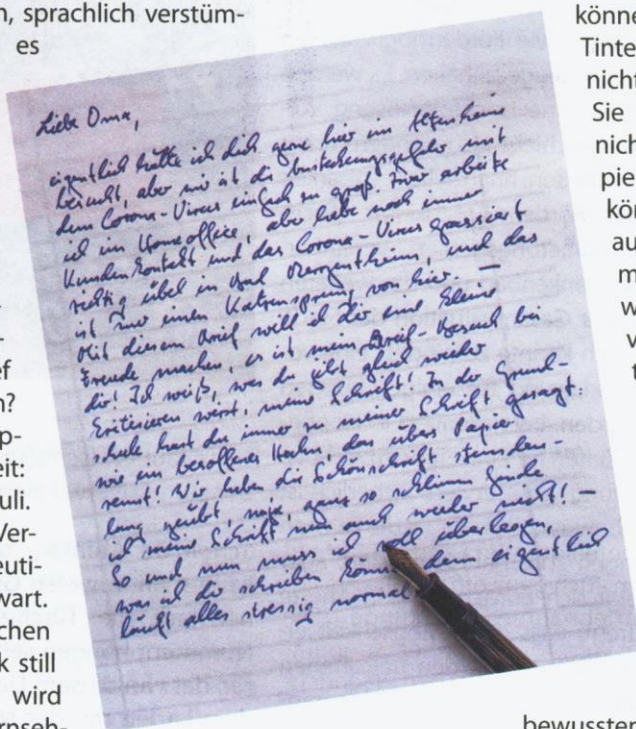 n, sprachlich verstüm-
es
-
ef
n?
p-
eit:
uli.
Ver-
euti-
wart.
chen
k still
wird
rnseh-
Liebe Oma,
eigentlich hätte ich dich gerne hier im Altenheim
besucht, aber mir ist die Ansteckungsgefahr mit
dem Corona-Virus einfach zu groß. Zwar arbeite
ich im Homeoffice, aber habe noch immer
Kundenkontakt und das Corona-Virus grassiert
richtig übel in Bad Mergentheim, und das
ist nur einen Katzensprung von hier. —
Mit diesem Brief will ich dir eine kleine
Freude machen, es ist mein Brief-Besuch bei
dir! Ich weiß, was du jetzt gleich wieder
kritisieren wirst, meine Schrift! In der Grund-
schule hast du immer zu meiner Schrift gesagt:
wie ein besoffener Hahn, der übers Papier
rennt! Wir haben die Schönschrift stunden-
lang geübt, naja, ganz so schlimm finde
ich meine Schrift nun auch wieder nicht! —
So und nun muss ich mal überlegen,
was ich dir schreiben könnte, denn eigentlich
läuft alles stressig normal
könne
Tinte
nicht
Sie
nich
pie
kör
au
m
w
v
t
bewusster